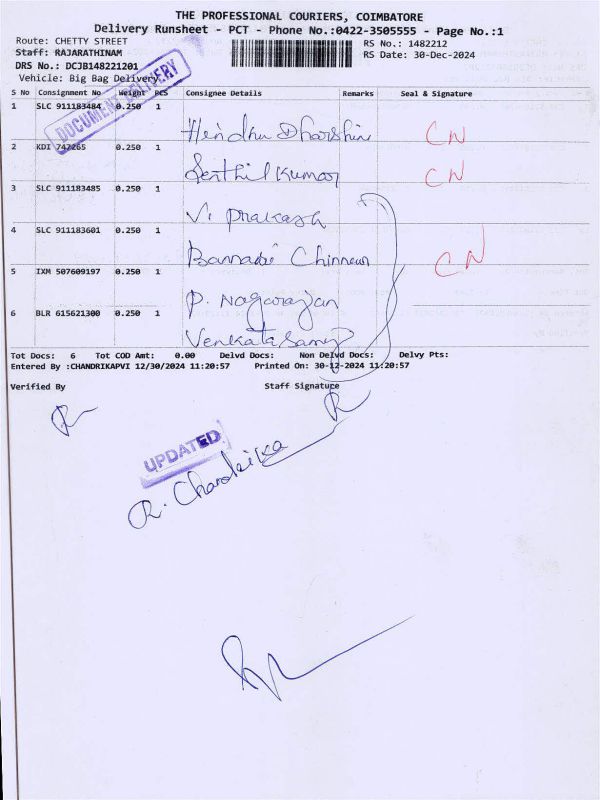 THE PROFESSIONAL COURIERS, COIMBATORE
Delivery Runsheet - PCT - Phone No.:0422-3505555 - Page No.:1
Route: CHETTY STREET RS No.: 1482212
Staff: RAJARATHINAM RS Date: 30-Dec-2024
DRS No.: DCJB148221201
Vehicle: Big Bag Delivery
DOCUMENT DELIVERY
S No Consignment No Weight PCS Consignee Details Remarks Seal & Signature
1 SLC 911183484 0.250 1
Hendhu Dharshini CN
2 KDI 747265 0.250 1
Senthil Kumar CN
3 SLC 911183485 0.250 1
V. Prakash
4 SLC 911183601 0.250 1
Chinnean CN
5 IXM 507609197 0.250 1
P. Nagarajan
6 BLR 615621300 0.250 1
Venkatasamy
Tot Docs: 6 Tot COD Amt: 0.00 Delvd Docs: Non Delvd Docs: Delvy Pts:
Entered By :CHANDRIKAPVI 12/30/2024 11:20:57 Printed On: 30-12-2024 11:20:57
Verified By Staff Signature
UPDATED
R. Chandrika